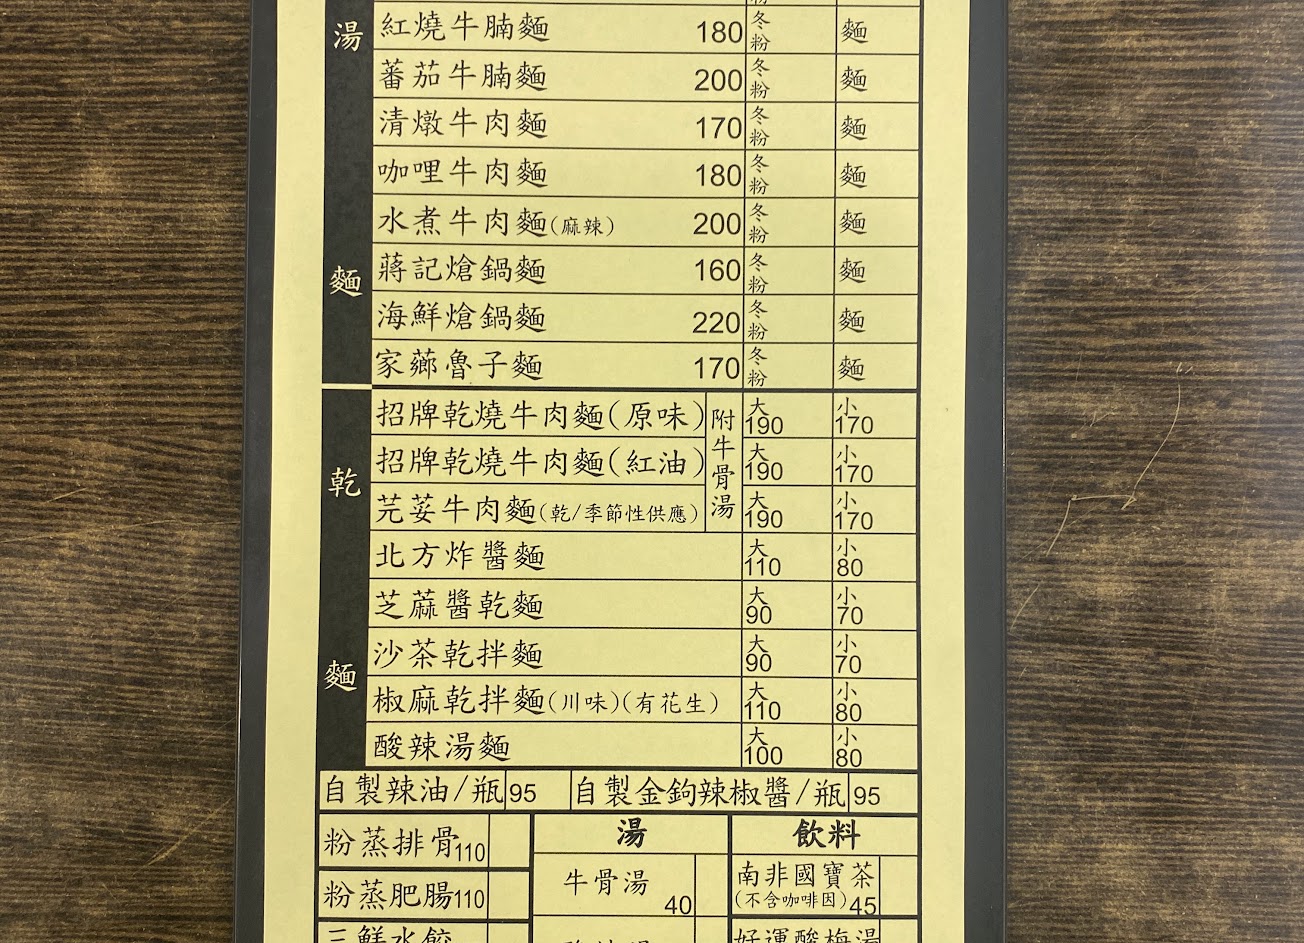 湯麵
紅燒牛腩麵 180 冬粉 麵
蕃茄牛腩麵 200 冬粉 麵
清燉牛肉麵 170 冬粉 麵
咖哩牛肉麵 180 冬粉 麵
水煮牛肉麵(麻辣) 200 冬粉 麵
蔣記熗鍋麵 160 冬粉 麵
海鮮熗鍋麵 220 冬粉 麵
家薌魯子麵 170 冬粉 麵
乾麵
招牌乾燒牛肉麵(原味) 大190 小170
招牌乾燒牛肉麵(紅油) 大190 小170
芫荽牛肉麵(乾/季節性供應) 大190 小170
附牛骨湯
北方炸醬麵 大110 小80
芝蔴醬乾麵 大90 小70
沙茶乾拌麵 大90 小70
椒麻乾拌麵(川味)(有花生) 大110 小80
酸辣湯麵 大100 小80
自製辣油/瓶 95 自製金鉤辣椒醬/瓶 95
粉蒸排骨110
粉蒸肥腸110
三鮮水餃
湯
牛骨湯 40
飲料
南非國寶茶
(不含咖啡因)45
好運酸梅湯